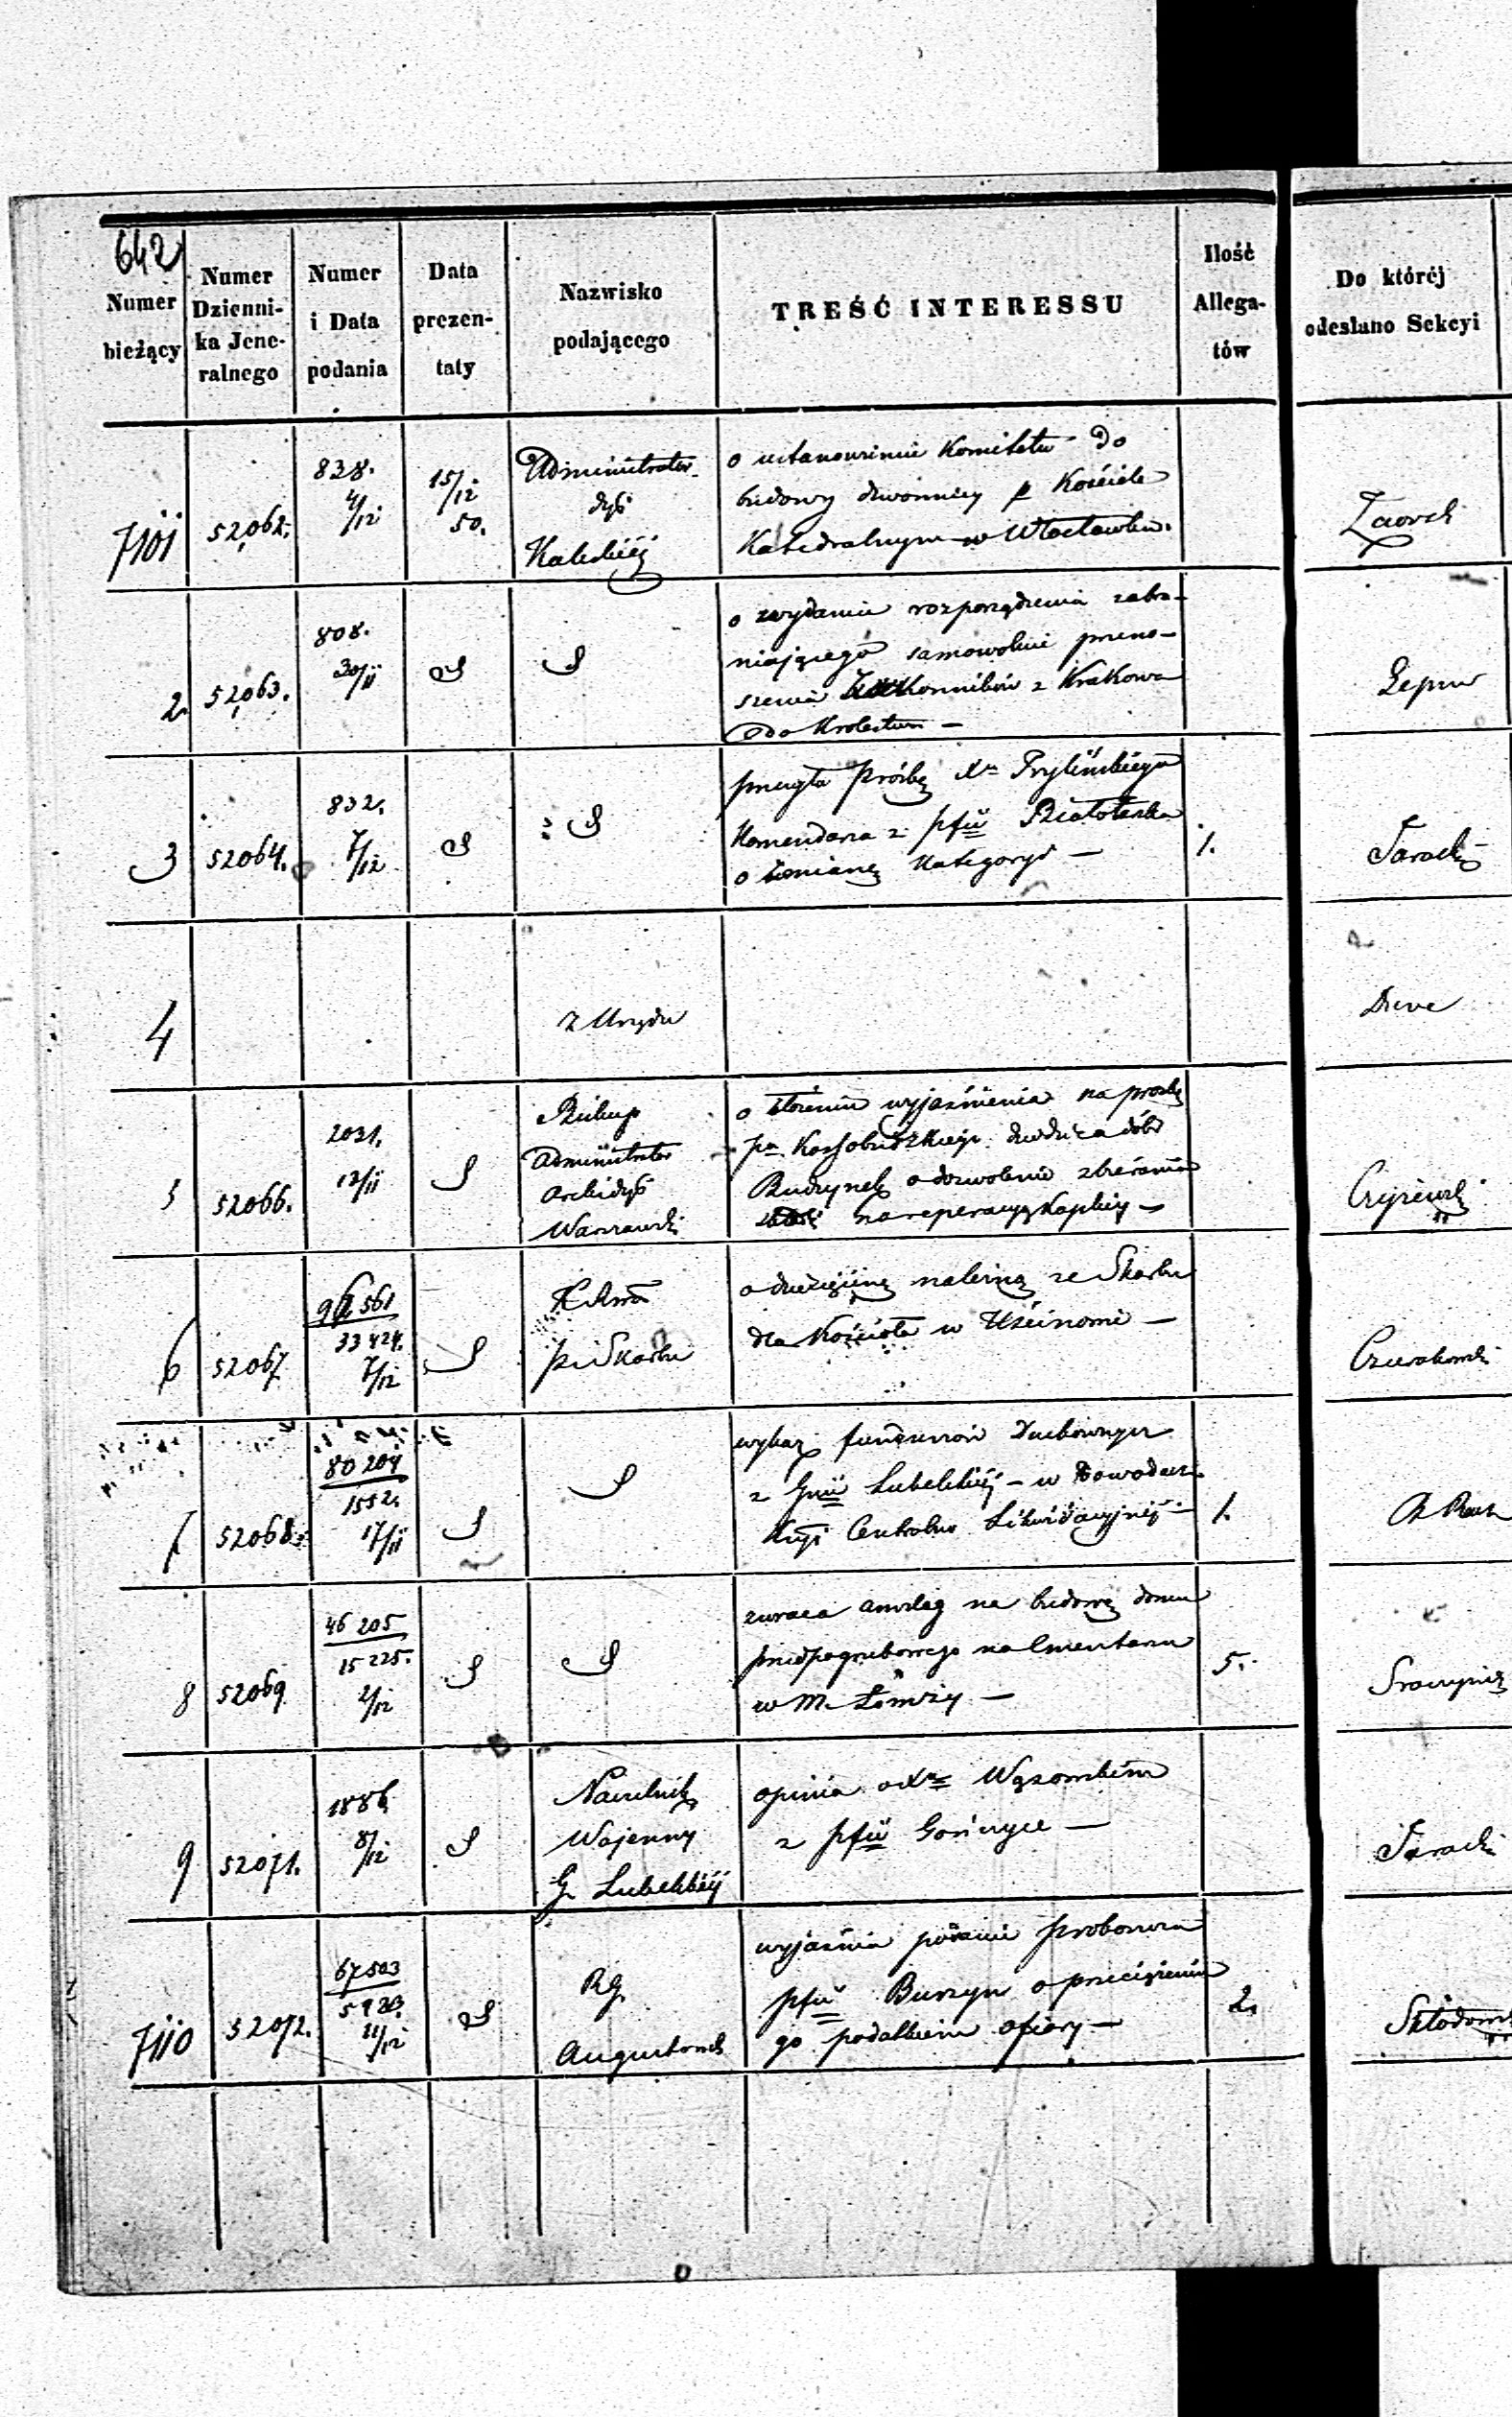 642
Numer bieżący
Numer Dzienni-
ka Jene-
ralnego
Numer
i Data
podania
Data
prezen-
taty
Nazwisko
podającego
TREŚĆ INTERESSU
Ilość
Allega-
tów
Do któréj
odesłano Sekcyi
7101
52062.
838.
4/12
15/12
50.
Administrator
dyi
Kaliskiéj
o ustanowienie Komitetu do
budowy dzwonnicy p Kościele
Katedralnym w Włocławku.
2
52063.
808.
30/11
o wydanie rozporządzenia zabra-
niającego samowolnie przeno-
szenia Zakonników z Krakowa
do Krolestwa —
3
52064.
832.
7/12
przesyła prośbę Xa Prylińskiego
Komendarza z pfii Białołęka
o zmianę Kategoryi —
1.
4
z Urzędu
5
52066.
2031.
12/11
Biskup
Administrator
Archidyi
Warszawski
o złożenie wyjaśnienia na prośbę
pa Kossobudzkiego dziedzica dóbr
Budzynek o dozwolenie zbierania
na reperacyą Kaplicy —
6
52067
33424.
7/12
KRmā
p. Skarbu
o dziesięcinę należną ze Skarbu
dla Kościoła w
7
52068.
80204
1552.
17/11
wykaz funduszów Duchownych
z Gnii Lubelskiéj — w dowodach
Kyi Centralno Likwidacyjnéj —
1.
8
52069
46205
15225.
2/12
zwraca anszlag na budowę domu
przedpogrzebowego na Cmentarzu
w M. Łomży —
5.
9
52071.
1886
8/12
Naczelnik
Wojenny
G. Lubelskiéj
opinia o Xu
z pfii Gończyce —
7110
52072.
67503
11/12
RG.
Augustowski
wyjaśnia podanie proboszcza
pfii Burzyn o przeciążeniu
go podatkiem ofiary —
2.